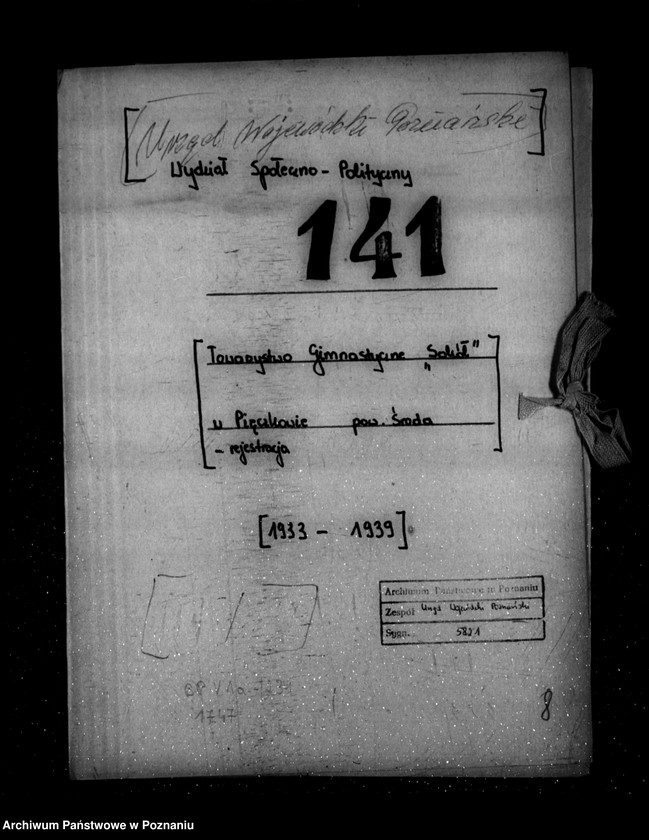 [Urząd Wojewódzki Poznański]
Wydział Społeczno - Polityczny
141
[Towarzystwo Gimnastyczne „Sokół"
w Pięczkowie pow. Środa
- rejestracja]
[1933 - 1939]
Archiwum Państwowe w Poznaniu
Zespół Urząd Wojewódzki Poznański
Sygn. 5821
1747
8
Archiwum Państwowe w Poznaniu